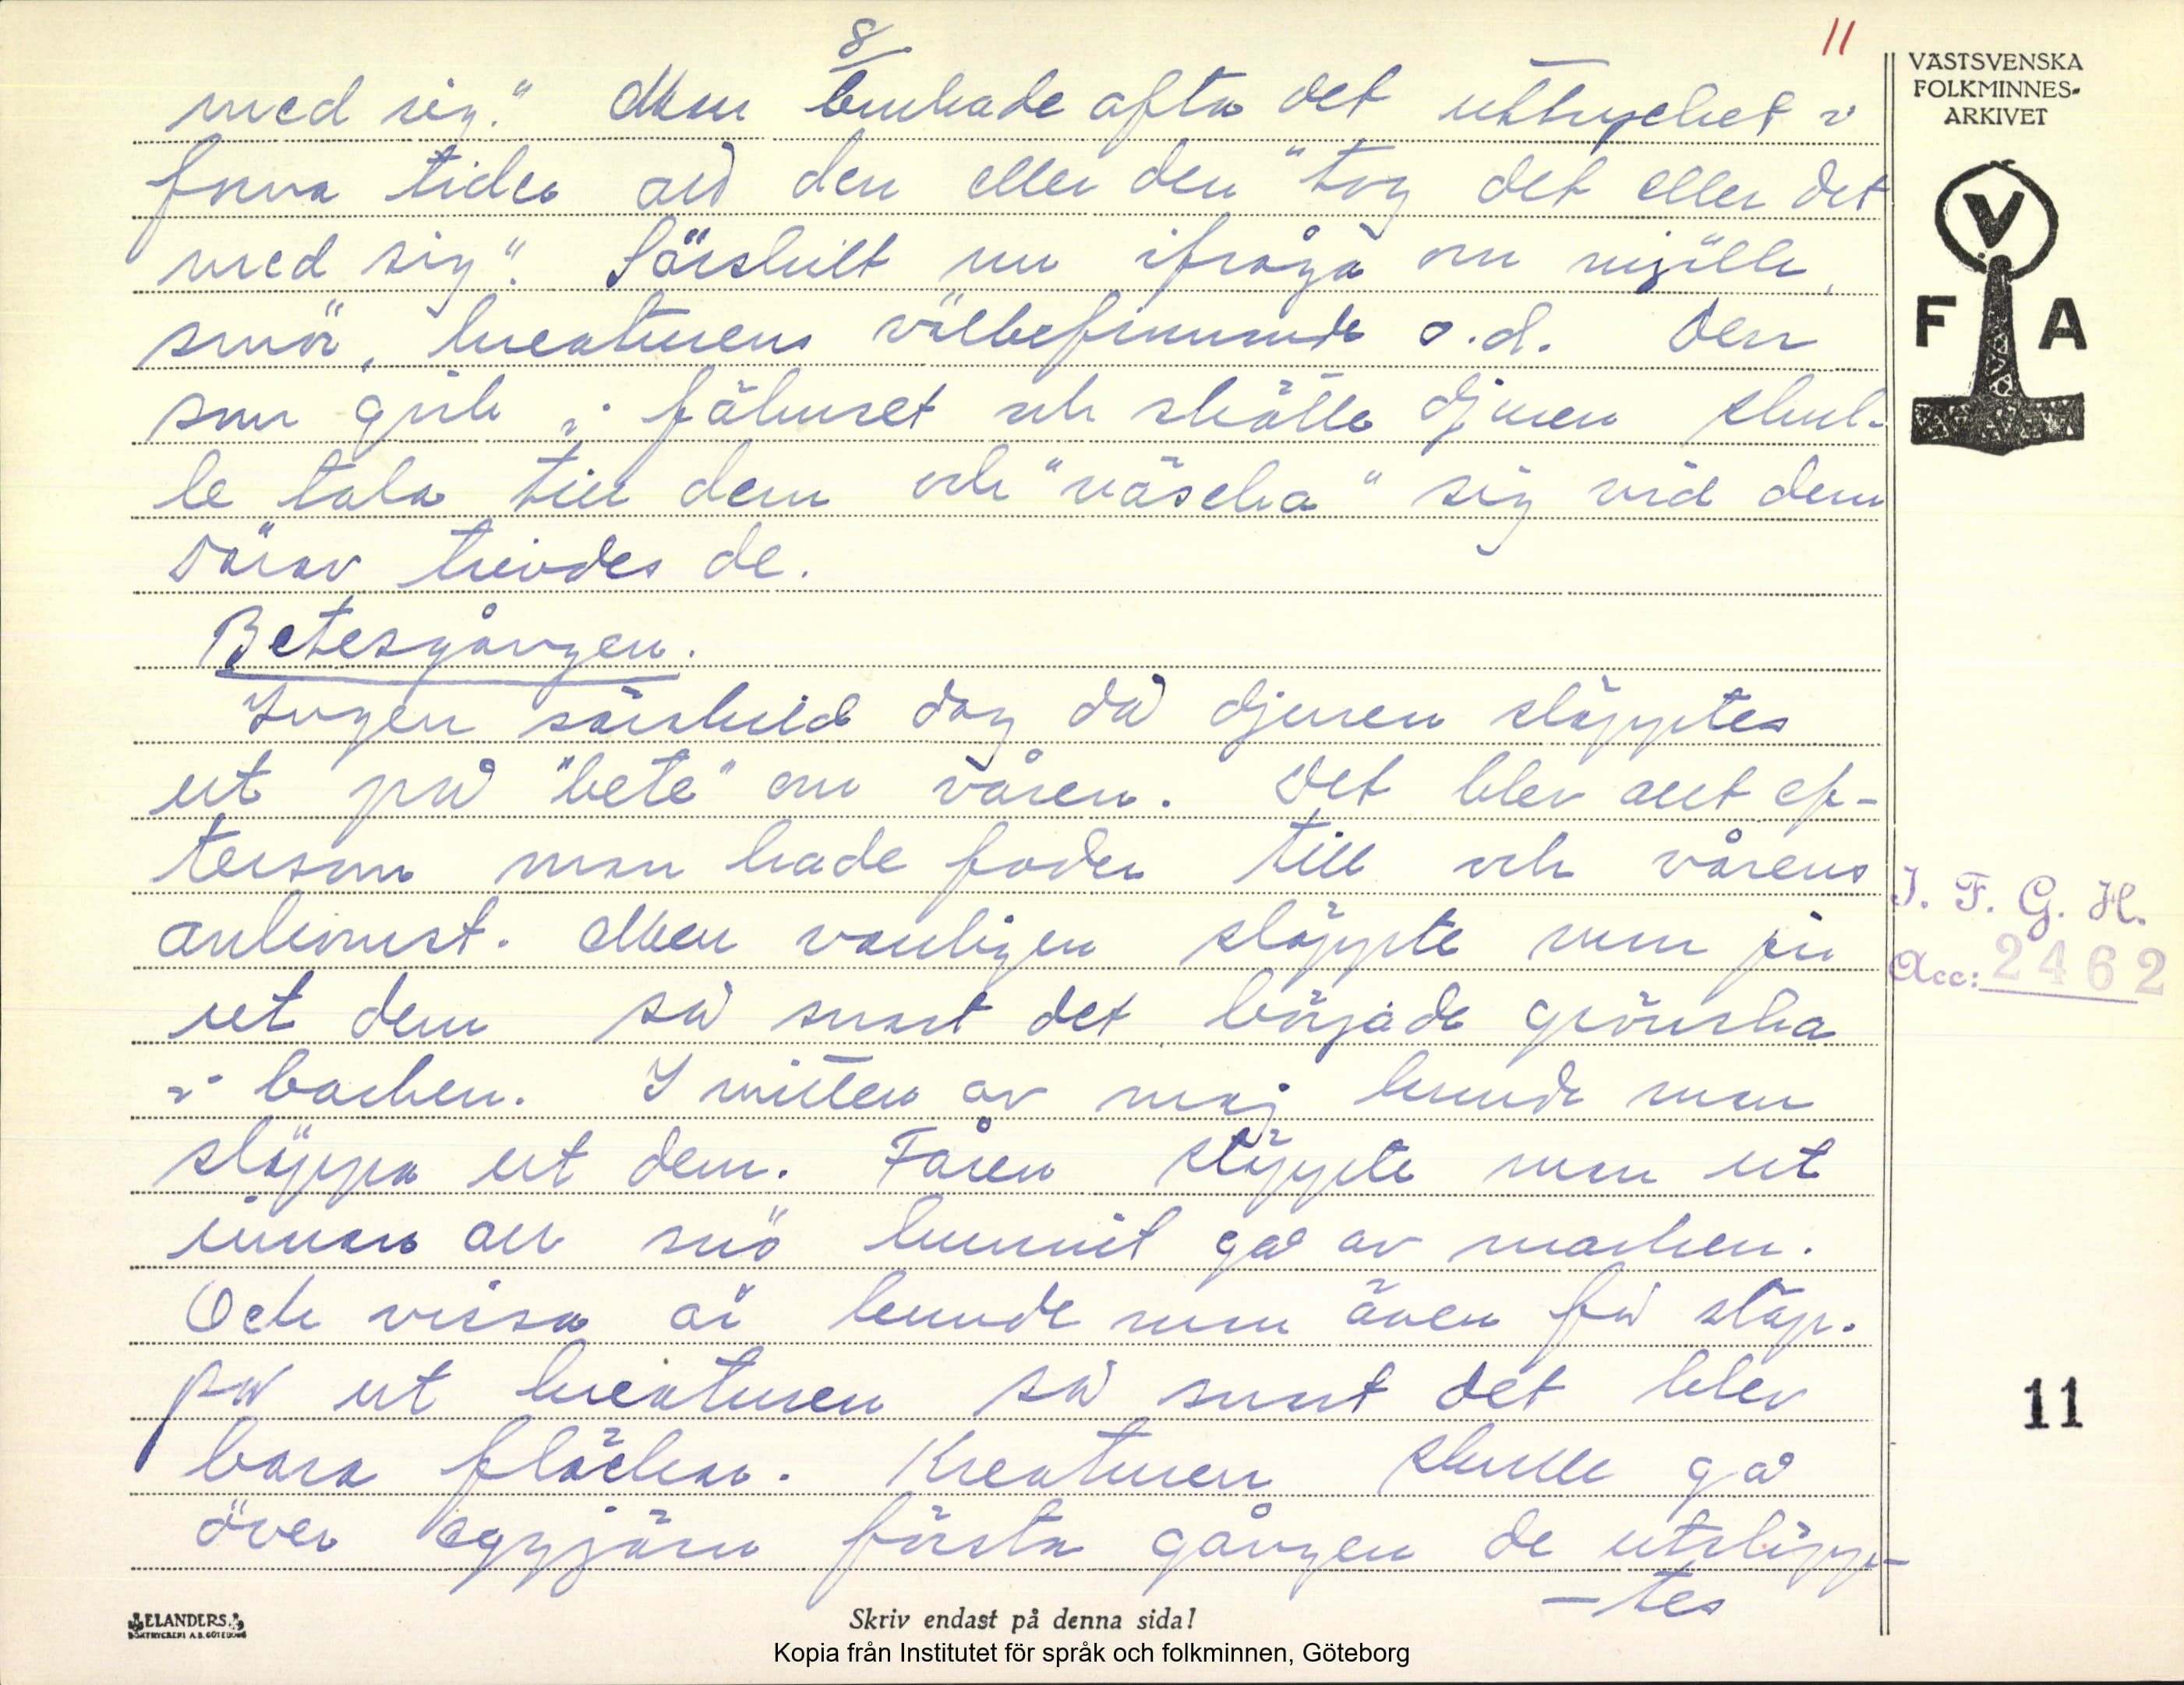 8
11
med sig." Man brukade ofta det uttrycket i
forna tider att den eller den "tog det eller det
med sig". Särskilt nu ifråga om mjölk,
smör, kreaturens välbefinnande o.d. Den
som gick i fähuset och skötte djuren skul-
le tala till dem och "väscka" sig vid dem
därav trivdes de.
Betesgången.
Ingen särskild dag då djuren släpptes
ut på "bete" om våren. Det blev allt ef-
tersom man hade foder till och vårens
ankomst. Men vanligen släppte man ju
ut dem så snart det började grönska
i backen. I mitten av maj kunde man
släppa ut dem. Fåren släppte man ut
innan all snö hunnit gå av marken.
Och vissa år kunde man även få släp-
pa ut kreaturen så snart det blev
bara fläckar. Kreaturen skulle gå
över eggjärn första gången de utsläpp-
-tes
VÄSTSVENSKA
FOLKMINNES-
ARKIVET
V
F A
I. F. G. H.
Acc: 2462
11
ELANDERS
BOKTRYCKERI A.B. GÖTEBORG
Skriv endast på denna sida!
Kopia från Institutet för språk och folkminnen, Göteborg